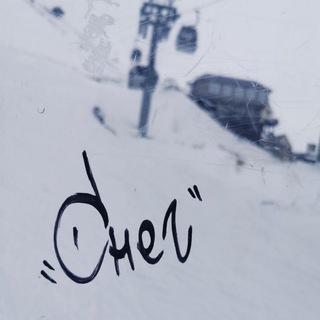 "Снег"